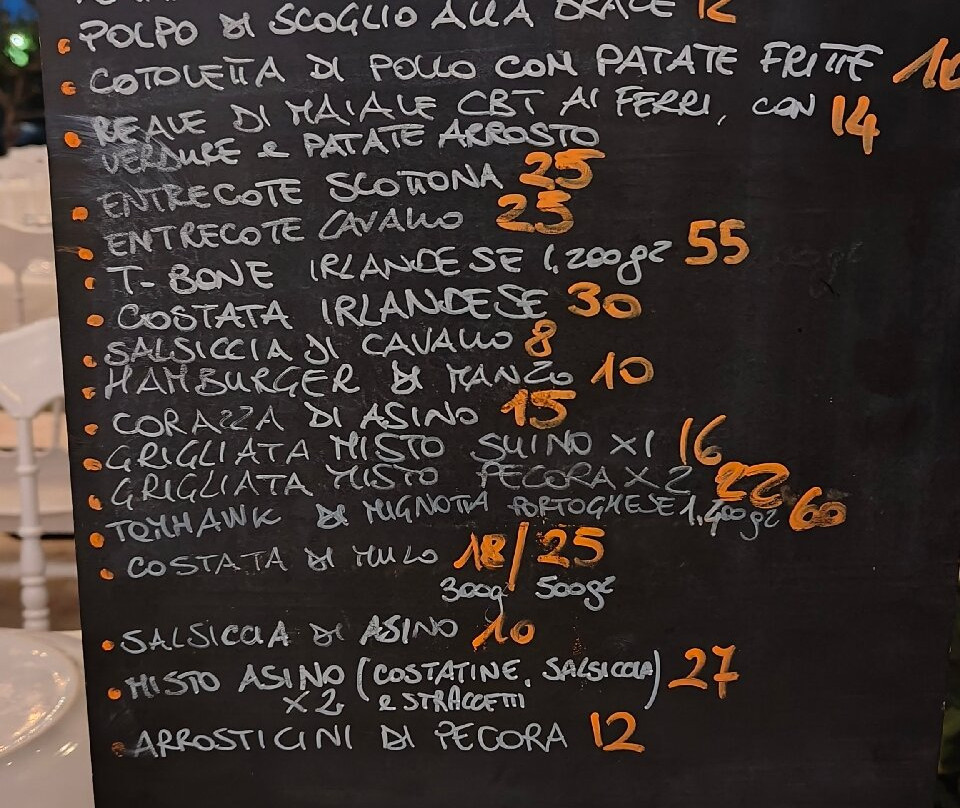 POLPO DI SCOGLIO ALLA BRACE 12
COTOLETTA DI POLLO CON PATATE FRITTE
REALE DI MAIALE CBT AI FERRI, CON 14
VERDURE e PATATE ARROSTO
ENTRECOTE SCOTTONA 25
ENTRECOTE CAVALLO 25
T-BONE IRLANDESE 1,200gr 55
COSTATA IRLANDESE 30
SALSICCIA DI CAVALLO 8
HAMBURGER DI MANZO 10
CORAZZA DI ASINO 15
GRIGLIATA MISTO SUINO X1 16
GRIGLIATA MISTO PECORA X2 22
TOMHAWK DI MIGNOTTA PORTOGHESE 1,400gr 60
COSTATA DI MULO 18/25
300gr 500gr
SALSICCIA DI ASINO 10
MISTO ASINO (COSTATINE, SALSICCIA) 27
X2 e STRACCETTI
ARROSTICINI DI PECORA 12